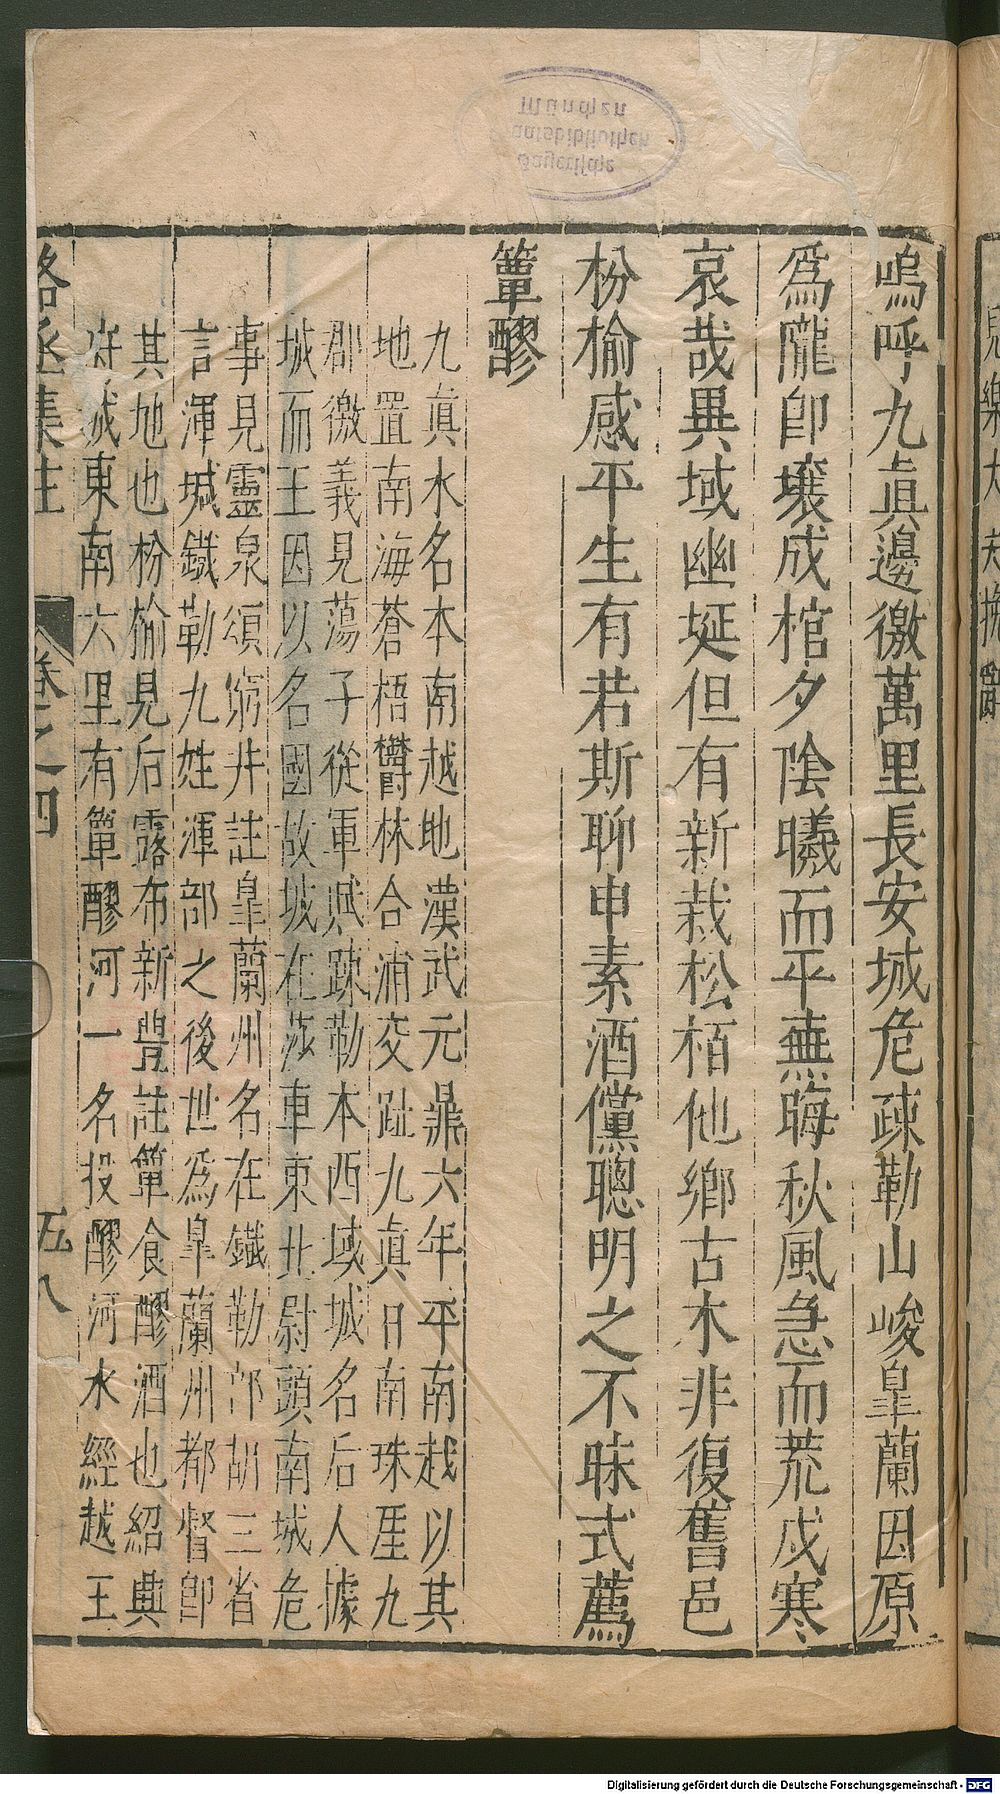 嗚呼九眞邊徼萬里長安城危疎勒山峻皐蘭因原
爲隴卽壤成棺夕陰曀而平蕪晦秋風急而荒戍寒
哀哉異域幽埏但有新栽松栢他鄉古木非復舊邑
枌榆感平生有若斯聊申素酒儻聰明之不昧式薦
簞醪
九眞水名本南越地漢武元鼎六年平南越以其
地置南海蒼梧欝林合浦交趾九眞日南珠厓九
郡徼義見蕩子從軍賦疎勒本西域城名后人據
城而王因以名國故城在莎車東北尉頭南城危
事見靈泉頌窮井註皐蘭州名在鐵勒部胡三省
言渾㻑鐵勒九姓渾部之後世爲皐蘭州都督卽
其地也枌榆見后露布新豐註簞食醪酒也紹興
府城東南六里有簞醪河一名投醪河水經越王
駱丞集註 卷之四 五八
Digitalisierung gefördert durch die Deutsche Forschungsgemeinschaft - DFG